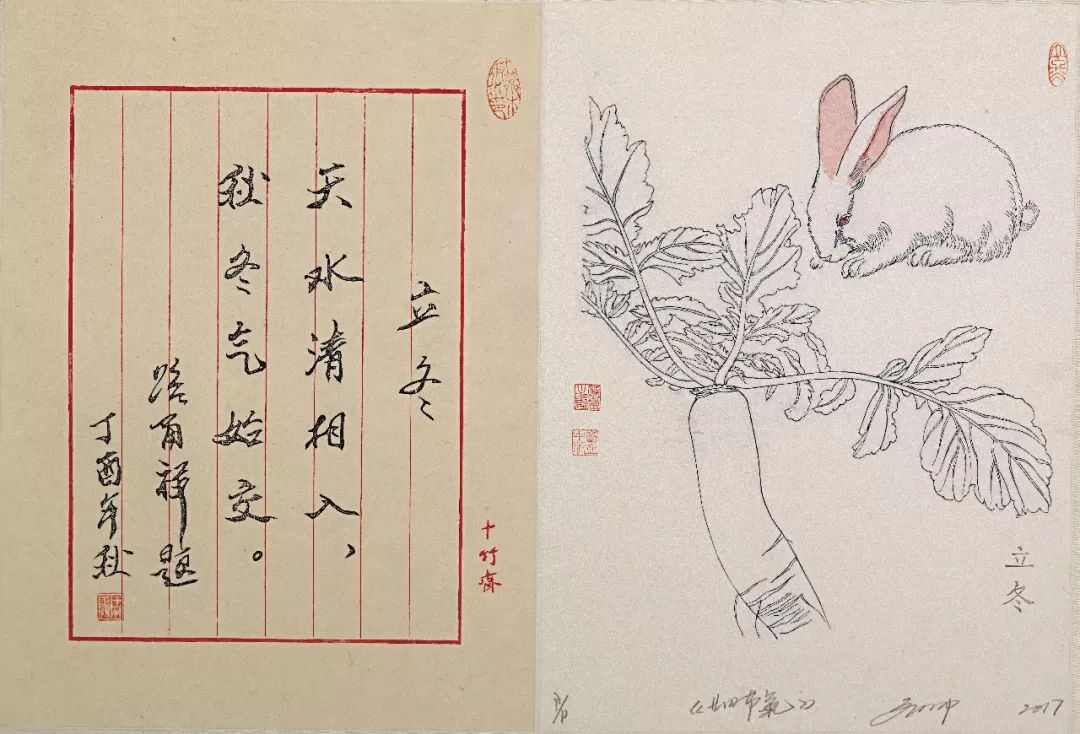 立冬
天水清相入，
秋冬气始交。
路育祥题
丁酉年秋
十竹斋
立冬
2017